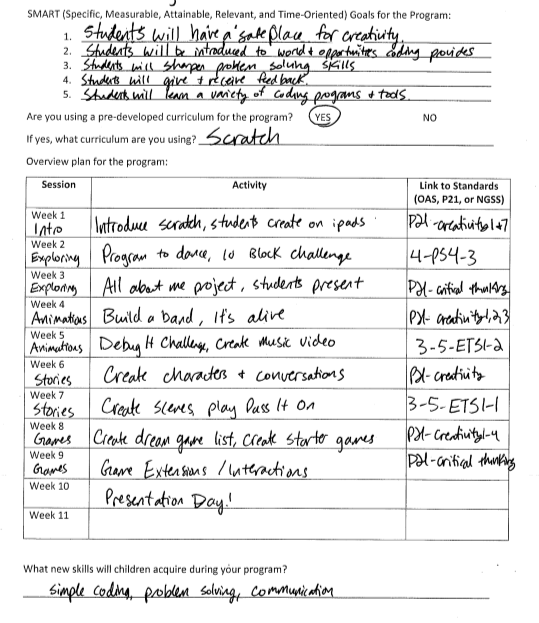 SMART (Specific, Measurable, Attainable, Relevant, and Time-Oriented) Goals for the Program:
1. Students will have a safe place for creativity.
2. Students will be introduced to world + opportunites coding povides
3. Students will sharpen problem solving skills
4. Students will give + receive feedback.
5. Students will learn a variety of coding programs + tools.
Are you using a pre-developed curriculum for the program? YES NO
If yes, what curriculum are you using? Scratch
Overview plan for the program:
Session Activity Link to Standards (OAS, P21, or NGSS)
Week 1 Intro Introduce scratch, students create on ipads P21-creativity 1+7
Week 2 Exploring Program to dance, 10 Block challenge 4-PS4-3
Week 3 Exploring All about me project, students present P21- critical thinking
Week 4 Animations Build a band, It's alive P21- creativity 1,2,3
Week 5 Animations Debug It Challenge, Create music video 3-5-ETS1-2
Week 6 Stories Create characters + conversations P21- creativity
Week 7 Stories Create scenes, play Pass It On 3-5-ETS1-1
Week 8 Games Create dream game list, create starter games P21- Creativity 1-4
Week 9 Games Game Extensions / Interactions P21- critical thinking
Week 10 Presentation Day!
Week 11
What new skills will children acquire during your program?
simple coding, problem solving, communication